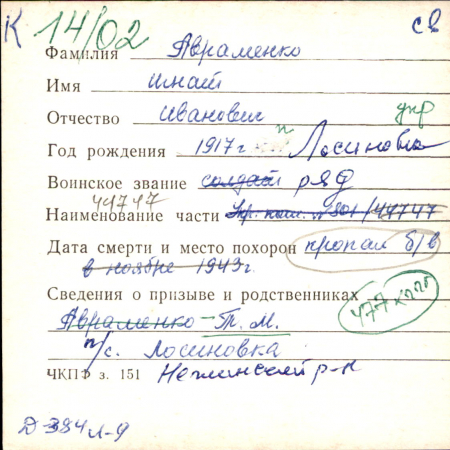 К 14/02 св
Фамилия Авраменко
Имя Игнат
Отчество Иванович укр
Год рождения 1917 г п Лосиновка
Воинское звание солдат ряд
44747
Наименование части /44747
Дата смерти и место похорон пропал б/в
в ноябре 1943г.
Сведения о призыве и родственниках
Авраменко - Т. М. 477
п/с. Лосиновка
ЧКПФ з. 151 Нежинский р-н
Д-384 л-9